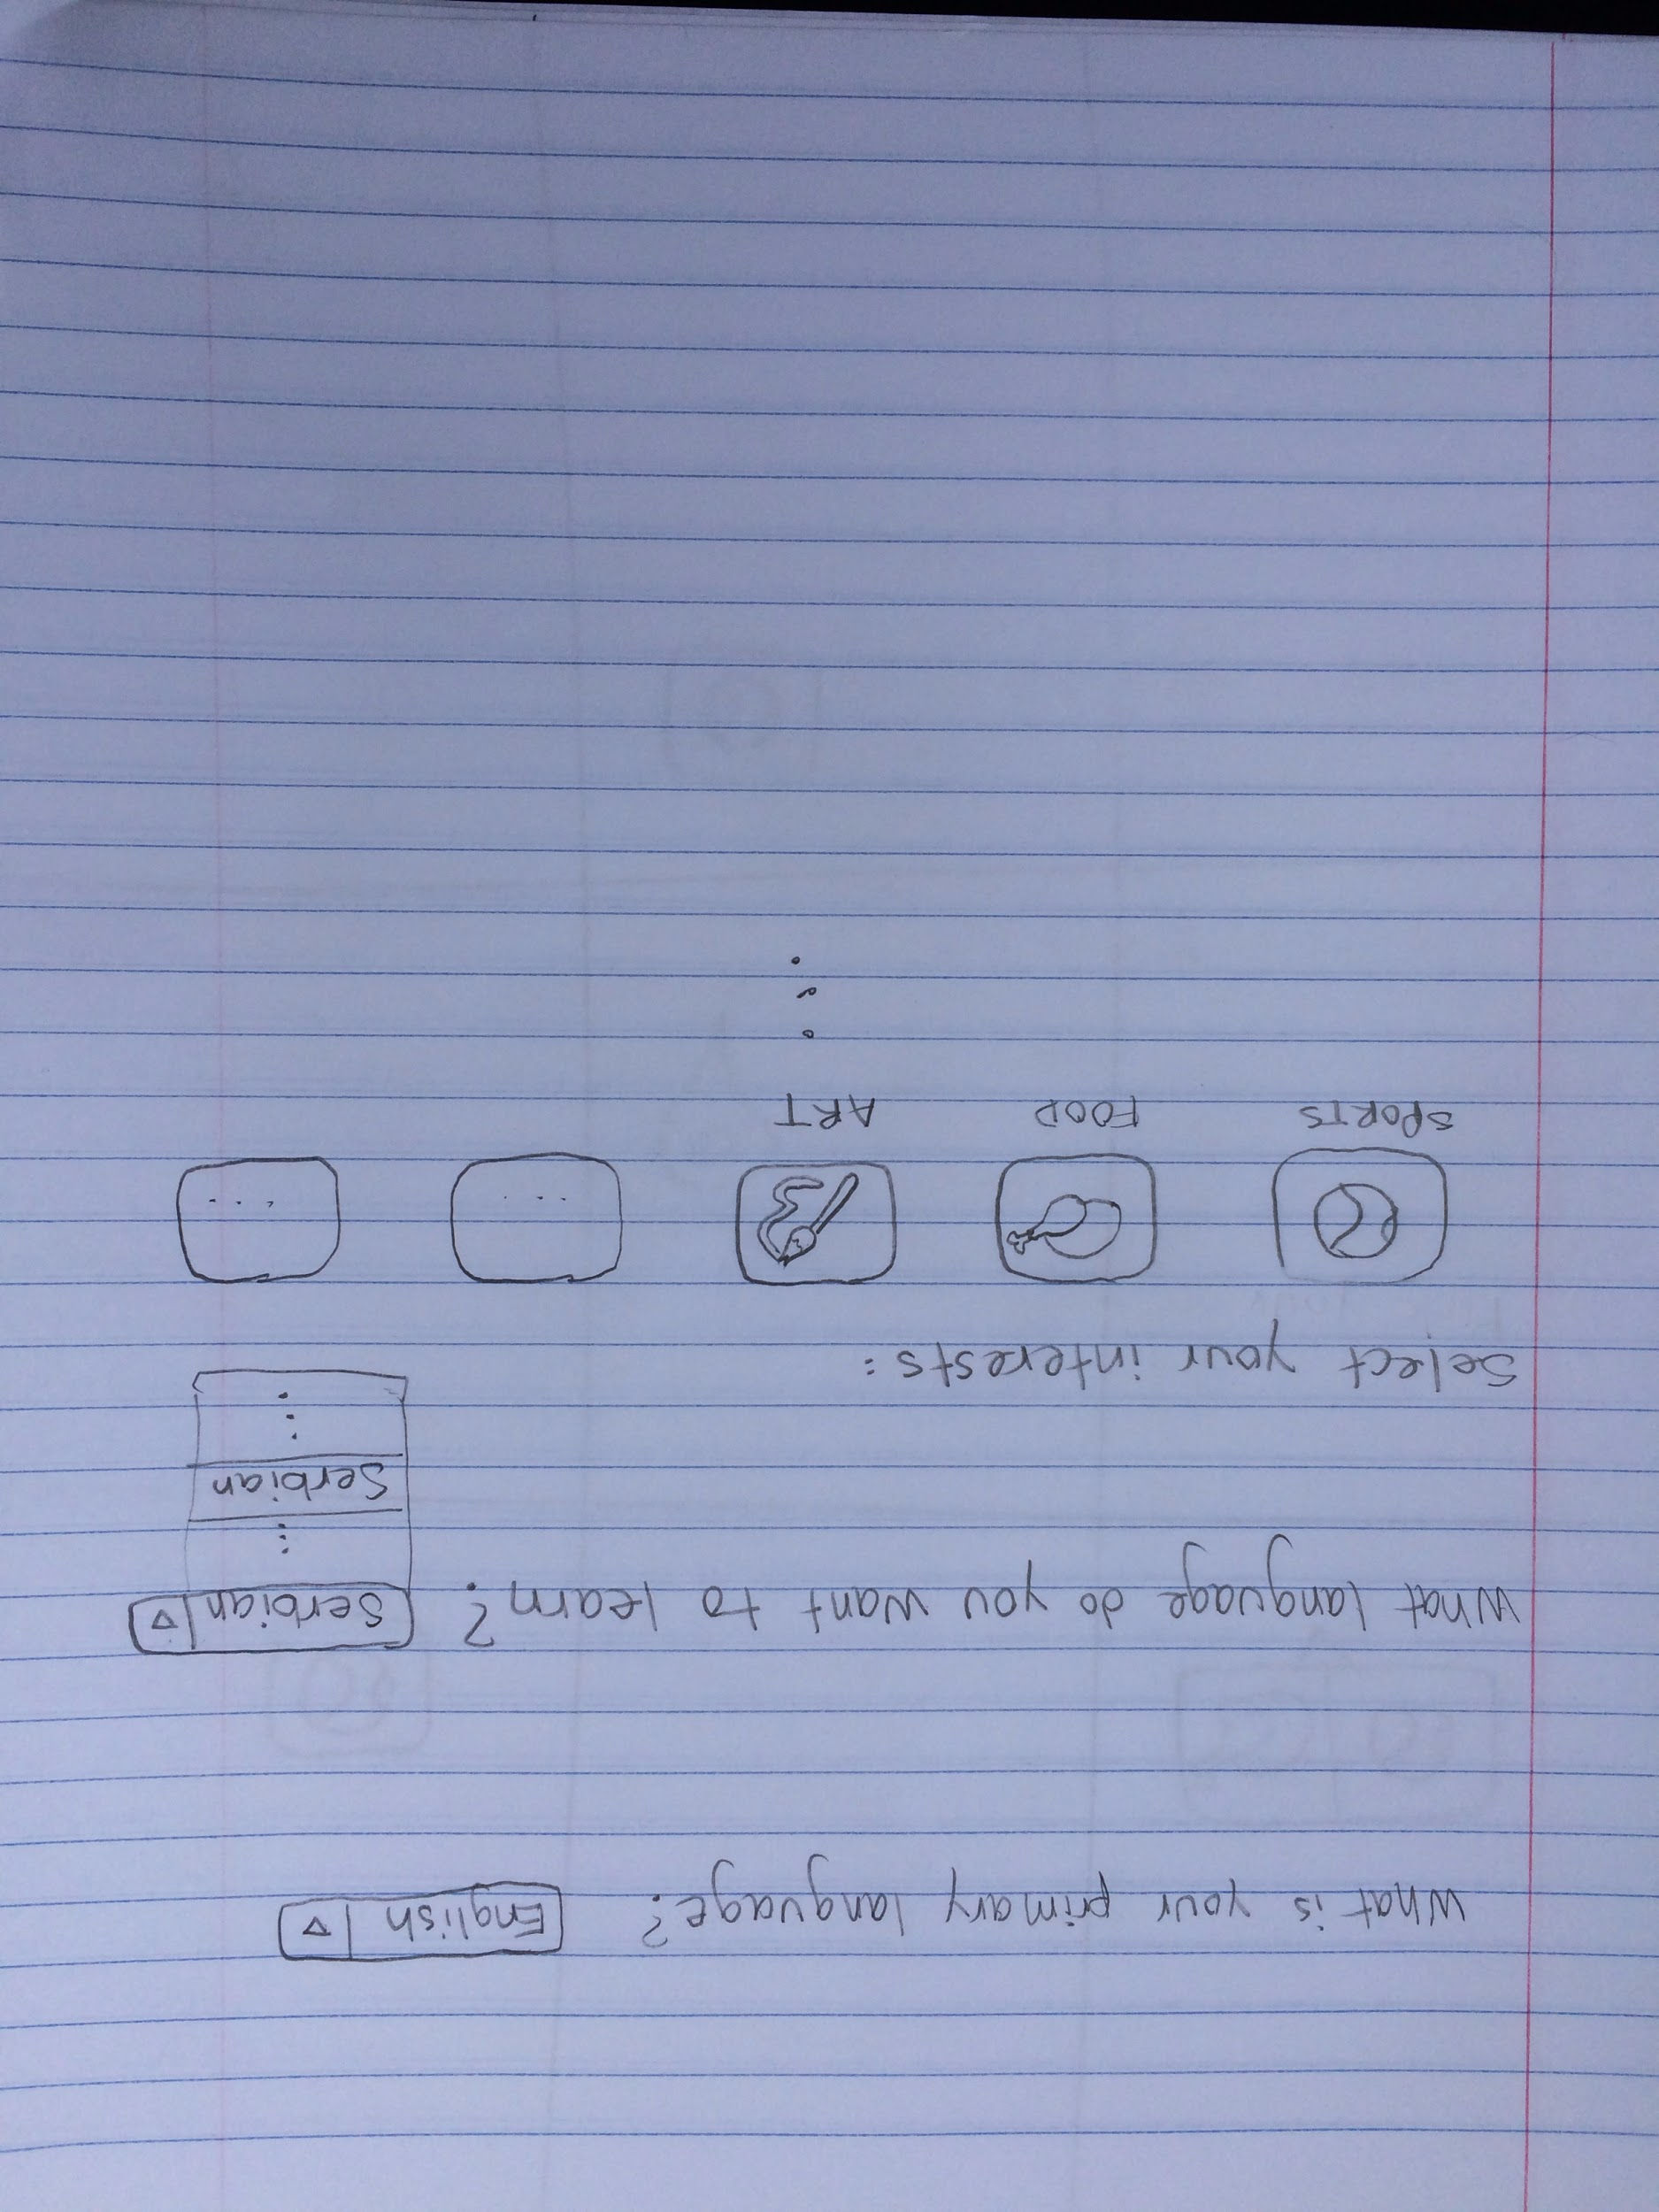 What is your primary language? English
What language do you want to learn? Serbian
Serbian
Select your interests:
SPORTS FOOD ART